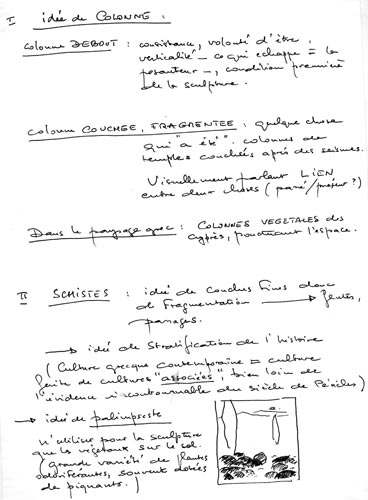 I idée de COLONNE :
Colonne DEBOUT : consistance, volonté d'être,
verticalité – ce qui échappe = la
pesanteur –, condition première
de la sculpture.
Colonne COUCHEE, FRAGMENTEE : quelque chose
qui "a été". colonnes de
temples couchées après des seismes.
Visuellement parlant LIEN
entre deux choses (passé/présent ?)
Dans le paysage grec : COLONNES VEGETALES des
cyprès, ponctuant l'espace.
II SCHISTES : idée de couches fines donc
de fragmentation → fentes,
passages.
→ idée de stratification de l'histoire
(Culture grecque contemporaine = culture
faite de cultures "associées", bien loin de
l'évidence incontournable du siècle de Périclès)
→ idée de palimpseste
N'utiliser pour la sculpture
que les végétaux sur le sol.
(grande variété de plantes
odoriférantes, souvent dotées
de piquants.)